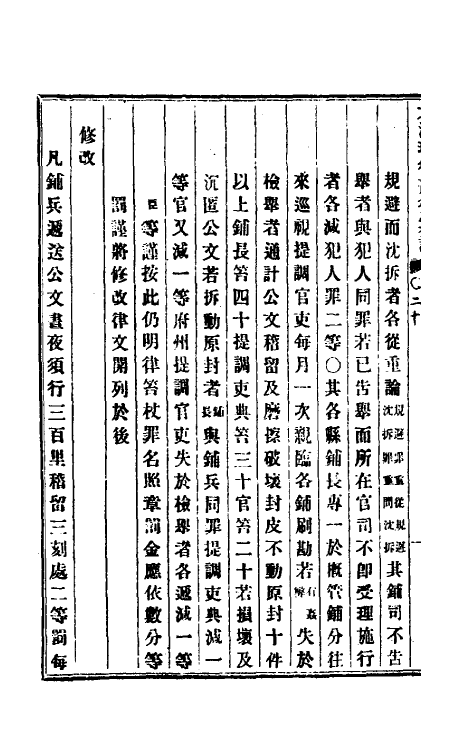 規避而沈拆者各從重論規避罪重從規避沈拆罪重問沈拆其鋪司不告
舉者與犯人同罪若已告舉而所在官司不卽受理施行
者各減犯人罪二等〇其各縣鋪長專一於槪管鋪分往
來巡視提調官吏每月一次親臨各鋪刷勘若有姦弊失於
檢舉者通計公文稽留及磨擦破壞封皮不動原封十件
以上鋪長笞四十提調吏典笞三十官笞二十若損壞及
沉匿公文若拆動原封者鋪長與鋪兵同罪提調吏典減一
等官又減一等府州提調官吏失於檢舉者各遞減一等
臣等謹按此仍明律笞杖罪名照章罰金應依數分等
罰謹將修改律文開列於後
修改
凡鋪兵遞送公文晝夜須行三百里稽留三刻處二等罰每